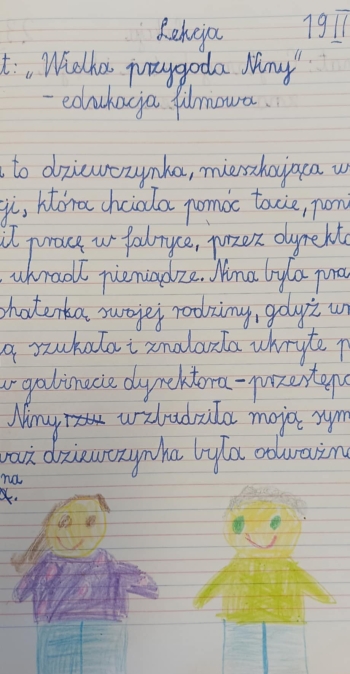 Lekcja 19 II
t: „Wielka przygoda Niny"
- edukacja filmowa.
to dziewczynka, mieszkająca w
ji, która chciała pomóc tacie, poni
ił pracę w fabryce, przez dyrekto
ukradł pieniądze. Nina była pra
ohaterką swojej rodziny, gdyż wr
ą szukała i znalazła ukryte p
w gabinecie dyrektora - przestępc
Niny wzbudziła moją sym
waż dziewczynka była odważna
na